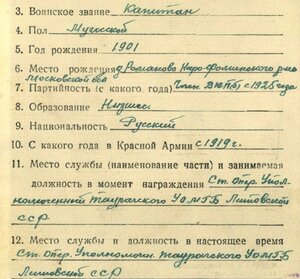 3. Воинское звание Капитан
4. Пол Мужской
5. Год рождения 1901
6. Место рождения д. Романово Наро-Фоминского р-на
Московской обл
7. Партийность (с какого года) Член ВКП(б) с 1925 года
8. Образование Низшее.
9. Национальность Русский
10. С какого года в Красной Армии с 1919 г.
11. Место службы (наименование части) и занимаемая
должность в момент награждения Ст. опер. Упол-
номоченный Таурагского УОМГБ Литовской
ССР
12. Место службы и должность в настоящее время
Ст. Опер. Уполномоч. Таурагского УОМГБ
Литовской ССР